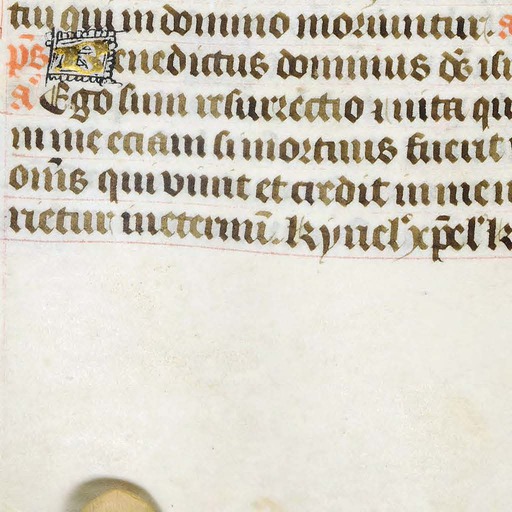 tui qui in domino moriuntur. a
ps Benedictus dominus ds isr
a Ego sum resurrectio et uita qu
in me etiam si mortuus fuerit
omis qui viuit et credit in me n
rietur in eternu. kyriel xpel k